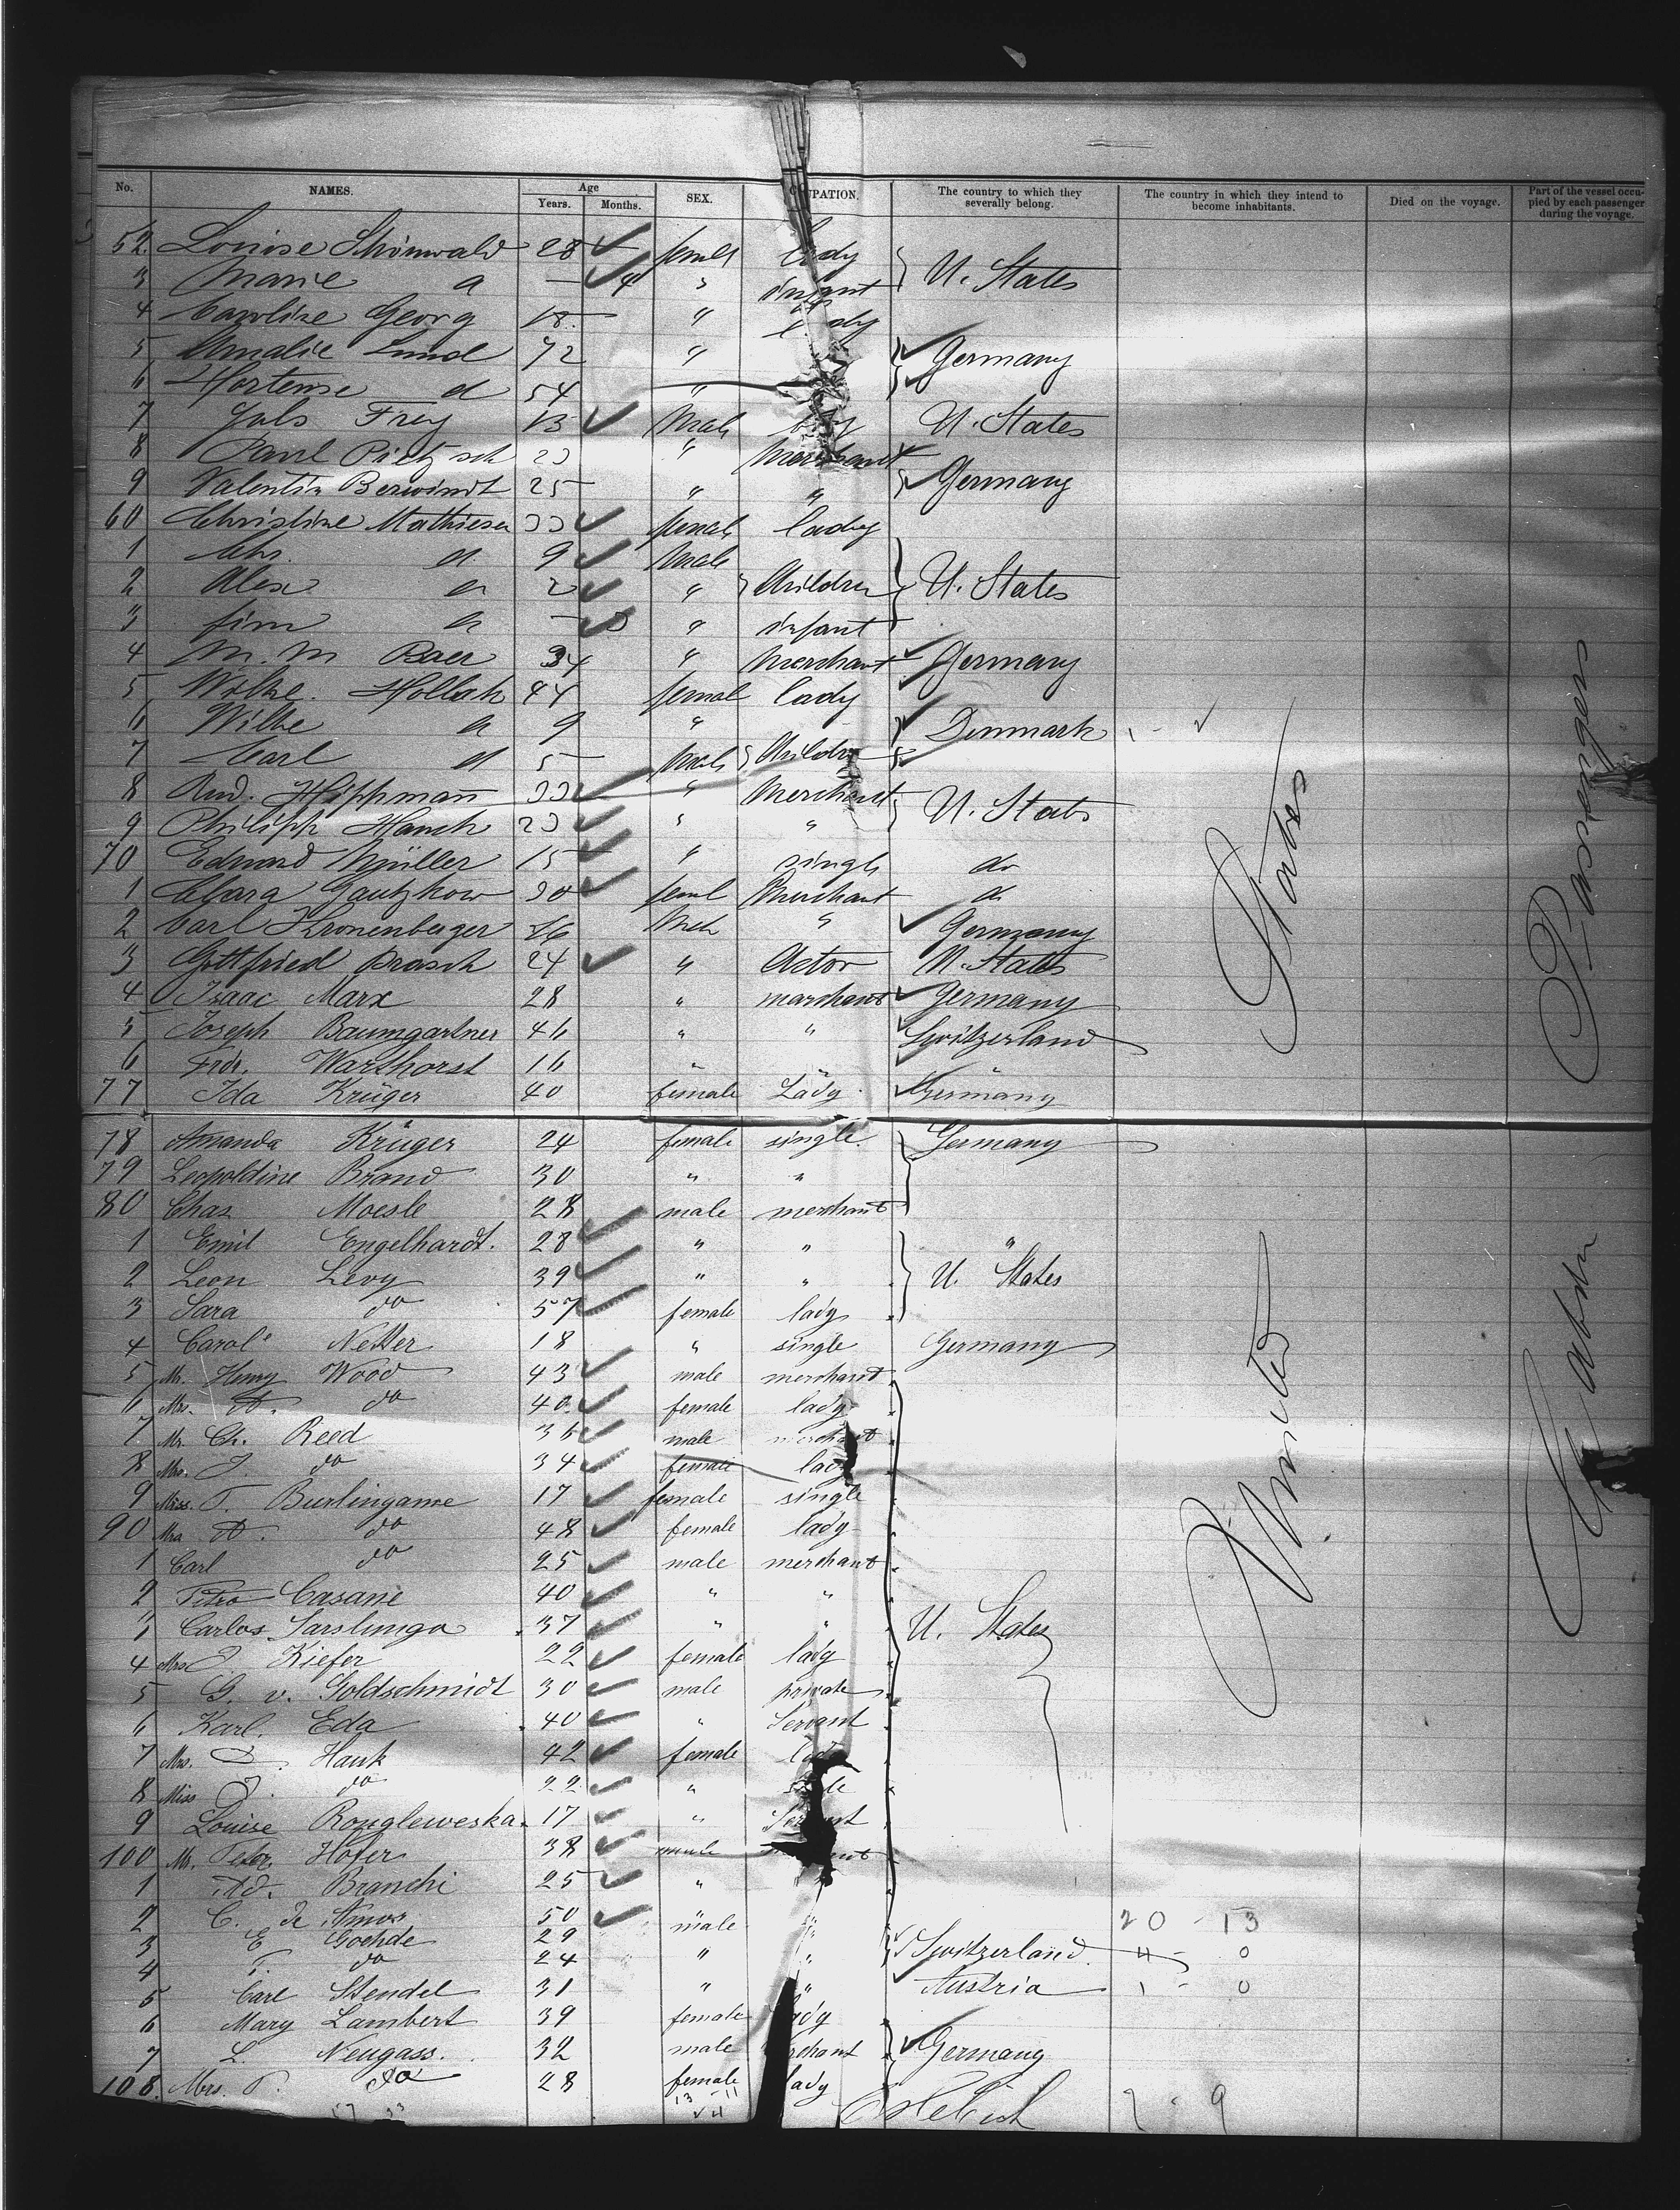 No. NAMES. Age Years. Months. SEX. OCCUPATION. The country to which they severally belong. The country in which they intend to become inhabitants. Died on the voyage. Part of the vessel occupied by each passenger during the voyage.
52 Louise Shönwald 28 femal lady
3 Marie d — 4 " infant U. States
4 Caroline Georg 18 " lady
5 Amalie Lund 72 " Germany
6 Hortense d 54 "
7 Juls Frey 13 Male boy U. States
8 Paul Pietzsch 23 " Merchant
9 Valentin Berwindt 25 " " Germany
60 Christine Mathiesen 33 female lady
1 Chr. d. 9 Male
2 Alex d 2 " Children U. States
3 d — 3 " infant
4 M. M Baer 34 " Merchant Germany
5 Wilhe. 44 female lady
6 Wilhe d 9 " Denmark 1 -
7 Carl d 5 Male Children
8 Rud. Hippmann 33 " Merchant U. Stats
9 Philipp Hauck 23 " "
70 Eduard Müller 15 " single do
1 Clara Gautzkow 30 feml Merchant do
2 Carl Kronenberger 26 Male " Germany
3 Gottfried Brasch 24 " Actor U. States
4 Isaac Marx 28 " merchant Germany
5 Joseph Baumgartner 46 " " Switzerland
6 Fidr. Warthorst 16 " " "
77 Ida Krüger 40 female Lady Germany
78 Amanda Krüger 24 female single Germany
79 Leopoldine Brand 30 " "
80 Chas Moesle 28 male merchant
1 Emil Engelhardt. 28 " " "
2 Leon Levy 39 " " U. States
3 Sara do 57 female lady
4 Carole Netter 18 " single Germany
5 Mr. Henry Wood 43 male merchant
6 Mrs. A. do 40 female lady
7 Mr. Ch. Reed 36 male merchant
8 Mrs. J. do 34 female lady
9 Miss. T. Burlingame 17 female single
90 Mrs A. do 48 female lady
1 Carl do 25 male merchant
2 Petro Casane 40 " "
3 Carlos Sarslunga 37 " " U. States
4 Mrs J. Kiefer 22 female lady
5 G. v. Goldschmidt 30 male private
6 Karl. Eda 40 " Servant
7 Mrs. Hauk 42 female lady
8 Miss J. do 22 " single
9 Louise Rongleweska 17 " Servant
100 Mr. Peter Hofer 38 male merchant
1 Ad. Branchi 25 "
2 C. de Amor 50 male " 20 - 13
3 E Goehde 29 " " Switzerland 4 - 0
4 T. do 24
5 Carl Stendel 31 " " Austria 1 - 0
6 Mary Lambert 39 female lady
7 L. Neugass. 32 male merchant Germany
108. Mrs. P. do 28 female lady
13 - 11
17 33
7 - 9
United States
Cabin Passengers